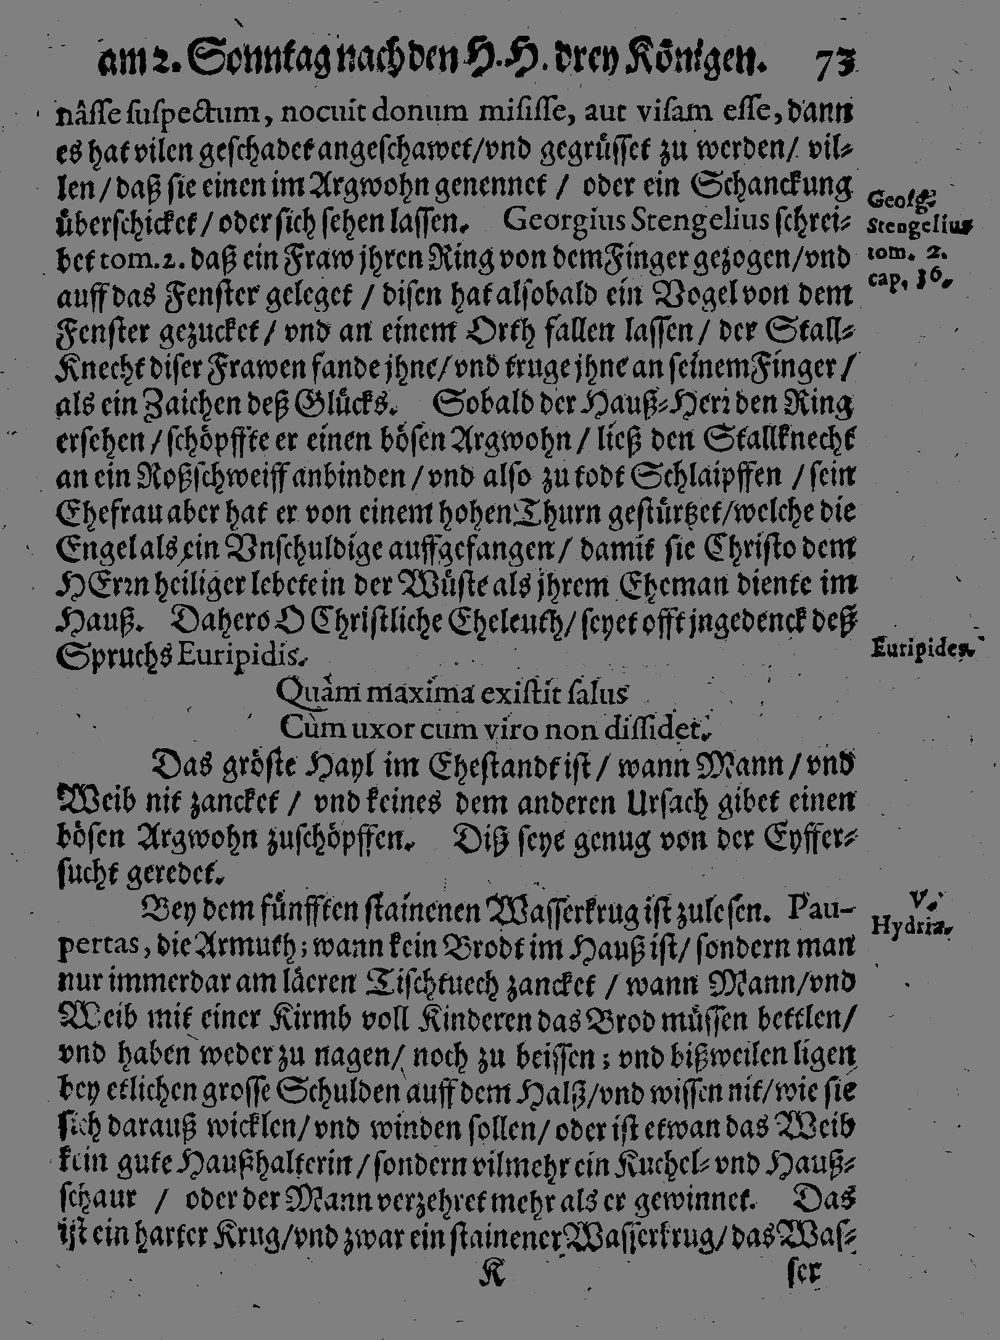 am 2. Sonntag nach den H. H. drey Königen. 73
nâsse suspectum, nocuit donum misisse, aut visam esse, dann
es hat vilen geschadet angeschawet/vnd gegrüsset zu werden/ vil-
len/ daß sie einen im Argwohn genennet / oder ein Schanckung
überschicket/ oder sich sehen lassen. Georgius Stengelius schrei-
Georg.
Stengelius
tom. 2.
cap. 36.
bet tom. 2. daß ein Fraw jhren Ring von dem Finger gezogen/vnd
auff das Fenster geleget / disen hat alsobald ein Vogel von dem
Fenster gezucket/ vnd an einem Orth fallen lassen/ der Stall-
Knecht diser Frawen fande jhne/ vnd truge jhne an seinem Finger /
als ein Zaichen deß Glücks. Sobald der Hauß-Herr den Ring
ersehen/ schöpffte er einen bösen Argwohn/ ließ den Stallknecht
an ein Roßschweiff anbinden / vnd also zu todt Schlaipffen / sein
Ehefrau aber hat er von einem hohen Thurn gestürtzet/welche die
Engel als ein Vnschuldige auffgefangen/ damit sie Christo dem
HErrn heiliger lebete in der Wüste als jhrem Eheman diente im
Hauß. Dahero O Christliche Eheleuth/ seyet offt jngedenck deß
Spruchs Euripidis.
Euripides.
Quàm maxima existit salus
Cùm uxor cum viro non dissidet.
Das gröste Hayl im Ehestandt ist / wann Mann / vnd
Weib nit zancket / vnd keines dem anderen Ursach gibet einen
bösen Argwohn zuschöpffen. Diß seye genug von der Eyffer-
sucht geredet.
Bey dem fünfften stainenen Wasserkrug ist zulesen. Pau-
V.
Hydria.
pertas, die Armuth; wann kein Brodt im Hauß ist/ sondern man
nur immerdar am läeren Tischtuech zancket / wann Mann/vnd
Weib mit einer Kirmb voll Kinderen das Brod müssen bettlen/
vnd haben weder zu nagen/ noch zu beissen; vnd bißweilen ligen
bey etlichen grosse Schulden auff dem Halß/vnd wissen nit/ wie sie
sich darauß wicklen/ vnd winden sollen/ oder ist etwan das Weib
kein gute Haußhalterin/ sondern vilmehr ein Kuchel- vnd Hauß-
schaur / oder der Mann verzehret mehr als er gewinnet. Das
ist ein harter Krug/vnd zwar ein stainener Wasserkrug/ das Was-
K ser